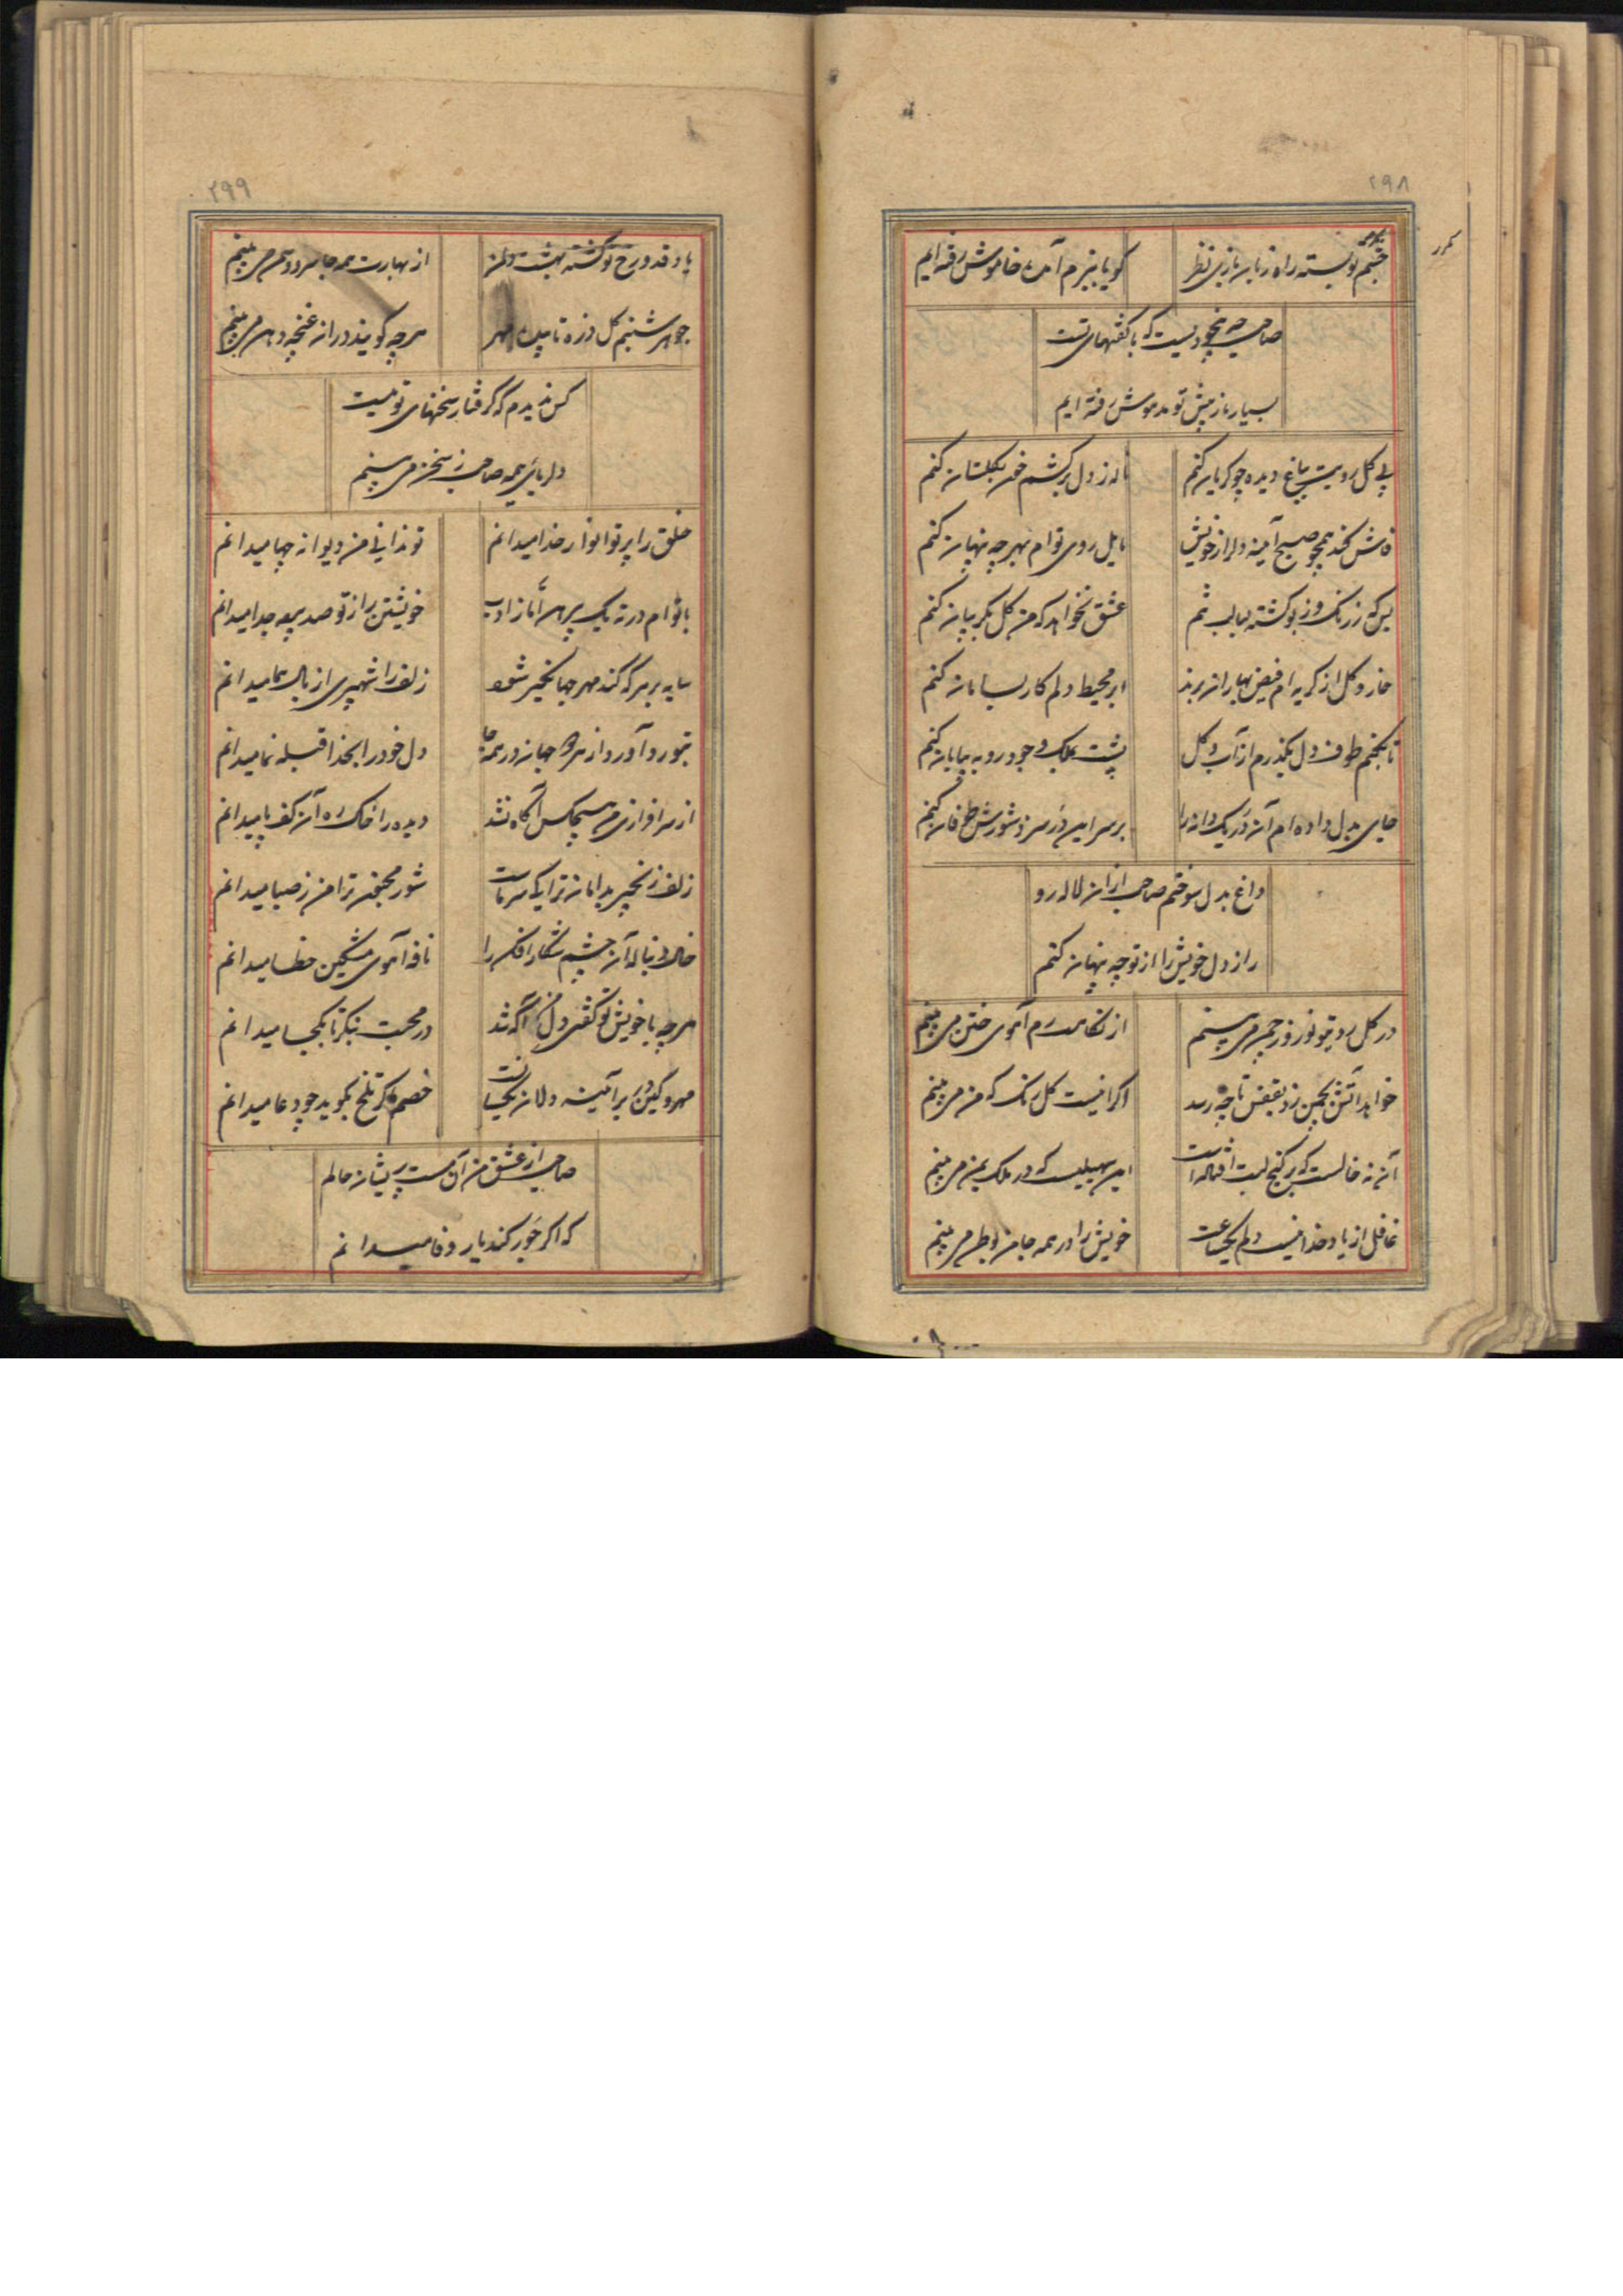 ۲۹۸
مکرر
چشم تو بسته راه زبان بازی نظر
گویا ببزم آمده خاموش رفته ایم
صاحب چه بیخودیست که با گفتهای تست
بسیار باز پیش تو مدهوش رفته ایم
بی گل رویت بباغ دیده چو گریان کنم
ناله ز دل برکشم خون بگلستان کنم
فاش کند همچو صبح آینه دل راز خویش
مایل روی توام بهر چه پنهان کنم
بس که ز رنگ و ز بو گشته لبالب تنم
عشق نخواهد که من گل بگریبان کنم
خار و گل از گریه ام فیض بهاران برند
ابر محیط دلم کار بسامان کنم
تا بکنم طوف دل بگذرم از آب و گل
پشت بملک وجود رو به بیابان کنم
جای بدل داده ام آن در یک دانه را
بر سر این در سزد شورش طوفان کنم
داغ بدل سوختم صاحب از آن لاله رو
راز دل خویش را از تو چه پنهان کنم
در گل روی تو نوروز چمن می بینم
از نگاهت رم آهوی ختن می بینم
خواهد آتش بچمن زد بقفس تا چه رسد
اگر اینست گل رنگ که من می بینم
آن نه خالست که بر کنج لبت افتاده است
این سهیلیست که در ملک یمن می بینم
غافل از یاد خدا نیست دلم یکساعت
خویش را در همه جا من بوطن می بینم
۲۹۹
یاد قد و رخ تو گشته بهشت دل من
از بهارت همه جا سرو و سمن می بینم
جوهر شبنم گل ذره تابیده مهر
هر چه گویند در آن غنچه دهن می بینم
کس ندیدم که گرفتار سخنهای تو نیست
دلربائی همه صاحب ز سخن می بینم
خلق را پرتو انوار خدا میدانم
تو ندانی من دیوانه چها میدانم
با توام در ته یک پیرهن اما ز ادب
خویشتن را ز تو صد پرده جدا میدانم
سایه بر هر که کند مهر جهانگیر شود
زلف را شهپری از بال هما میدانم
بتو رو آورد از هر دو جهان در همه جا
دل خود را بخدا قبله نما میدانم
از سرافرازی من هیچکس آگاه نشد
دیده را خاک ره آن کف پا میدانم
زلف زنجیر بدامان ترا یک سر ماست
شور مجنون ترا من ز صبا میدانم
خال دنباله آن چشم شکار افکن را
نافه آهوی مشکین خطا میدانم
هر چه با خویش تو گفتی دل من آگه شد
در محبت بنگر تا بکجا میدانم
مهر و کین در بر آئینه دلان یکسانست
خصم اگر تلخ بگوید چو دعا میدانم
صاحب از عشق من آن مست پریشان حالم
که اگر جور کند یار وفا میدانم